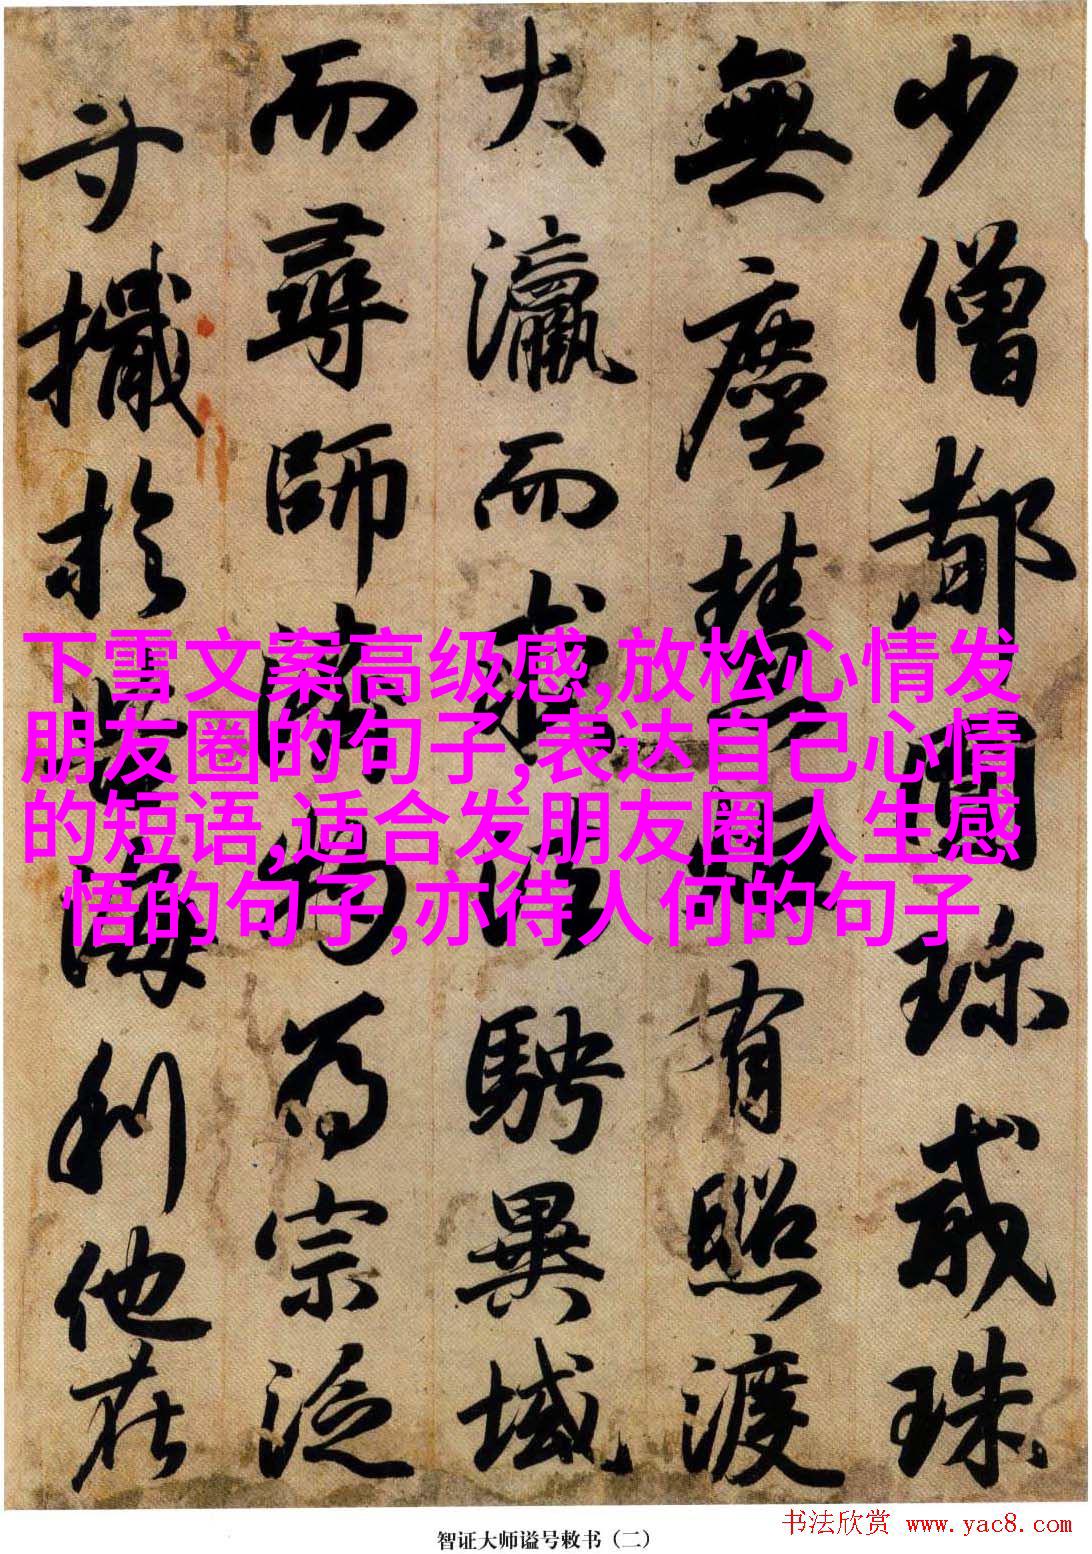 少僧都圓珍戒珠
無塵慧有照渡
大瀛而求法騁異域
而尋師物為宗泛
寸於海利他在
下雪文案高级感,放松心情发
朋友圈的句子,表达自己心情
的短语,适合发朋友圈人生感
悟的句子,亦待人何的句子
智证大师谥号敕书（二）
书法欣赏 www.yac8.com